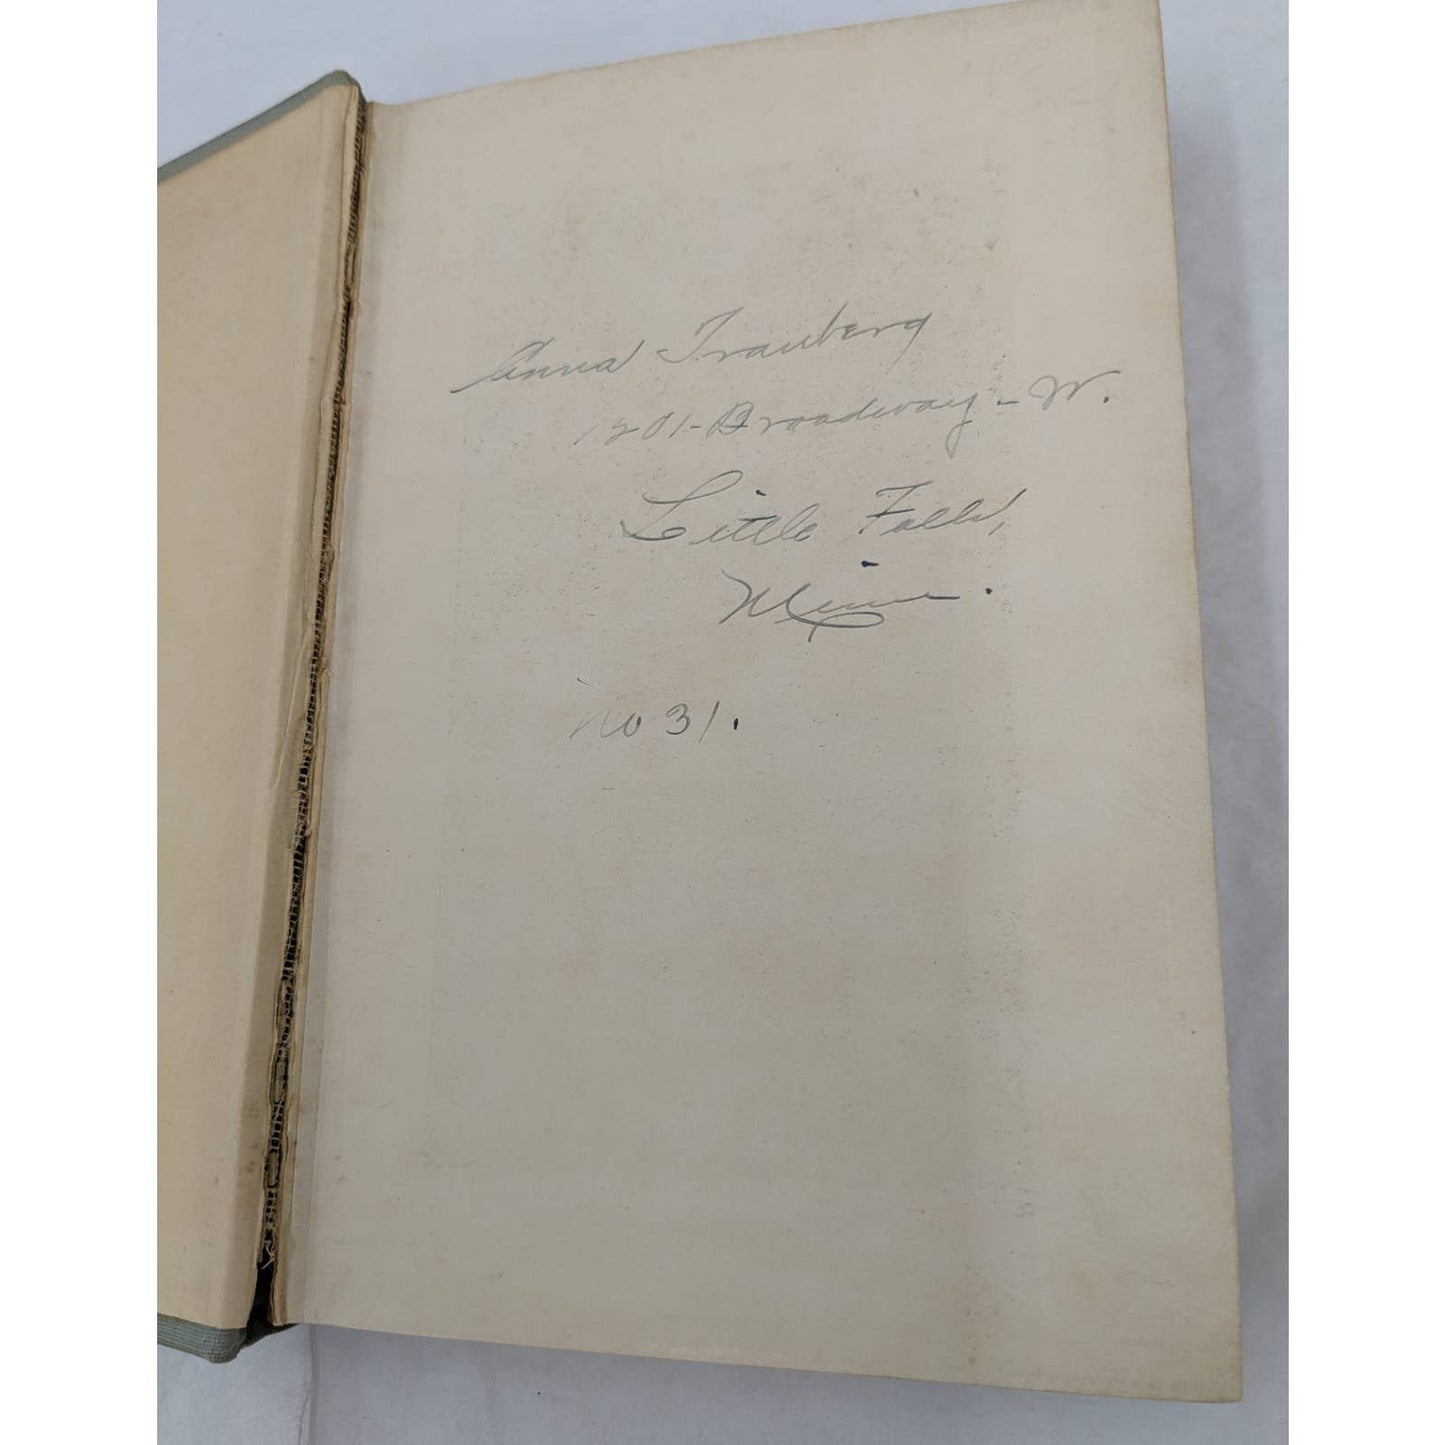 Anna Trauberg
1201-Broadway-W.
Little Falls,
Minn.
No 31.